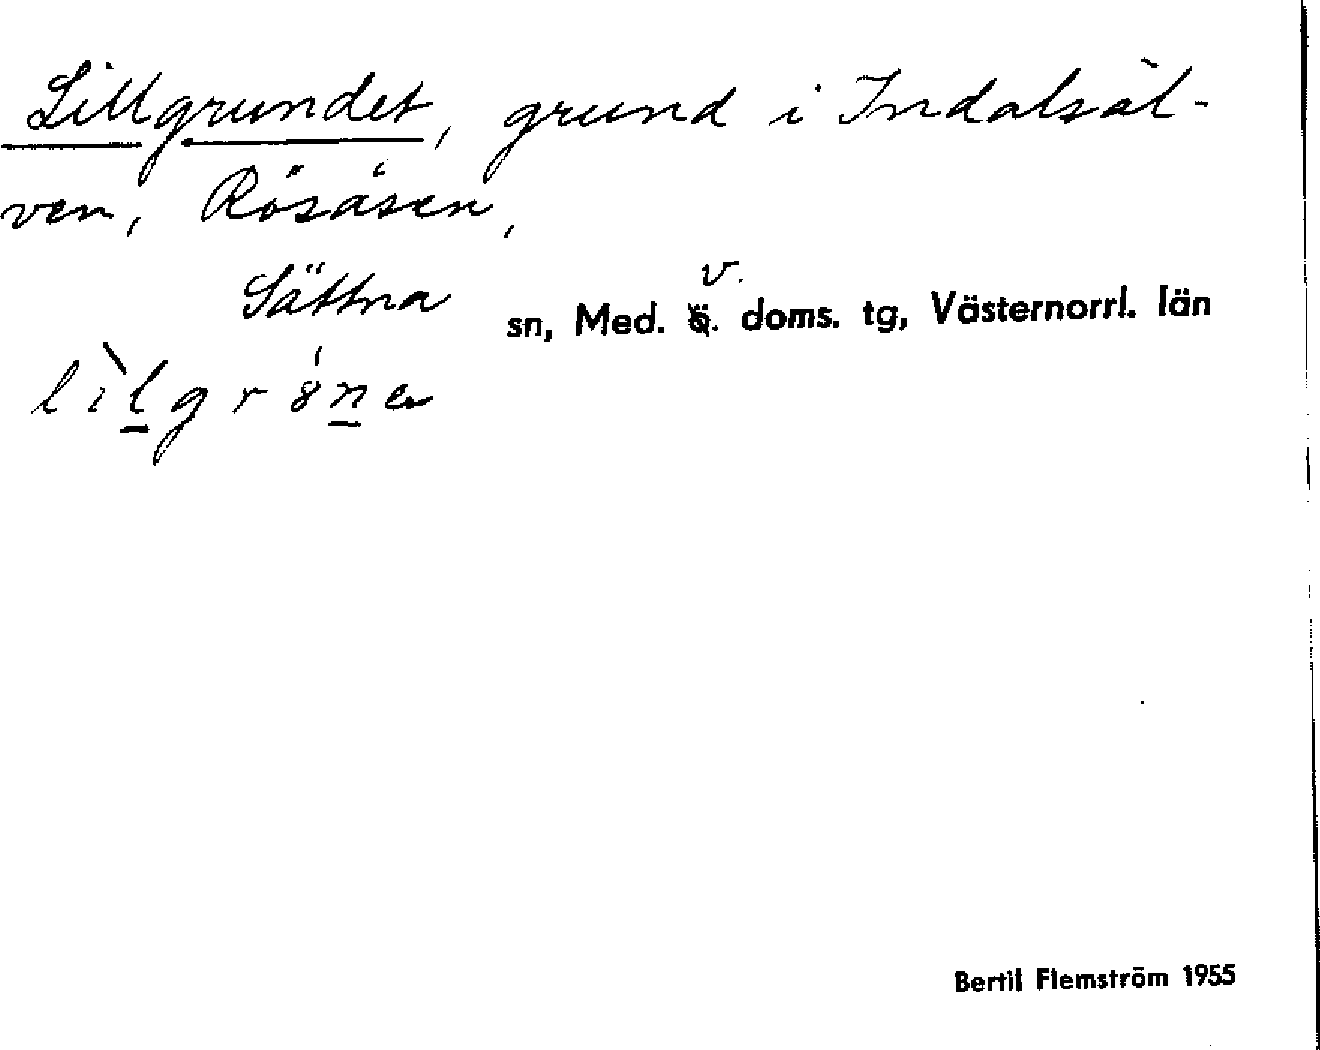 Lillgrundet, grund i Indalsäl-
ven, Rösåsen,
Sättna sn, Med. v. doms. tg, Västernorrl. län
lìlgr8́na
Bertil Flemström 1955